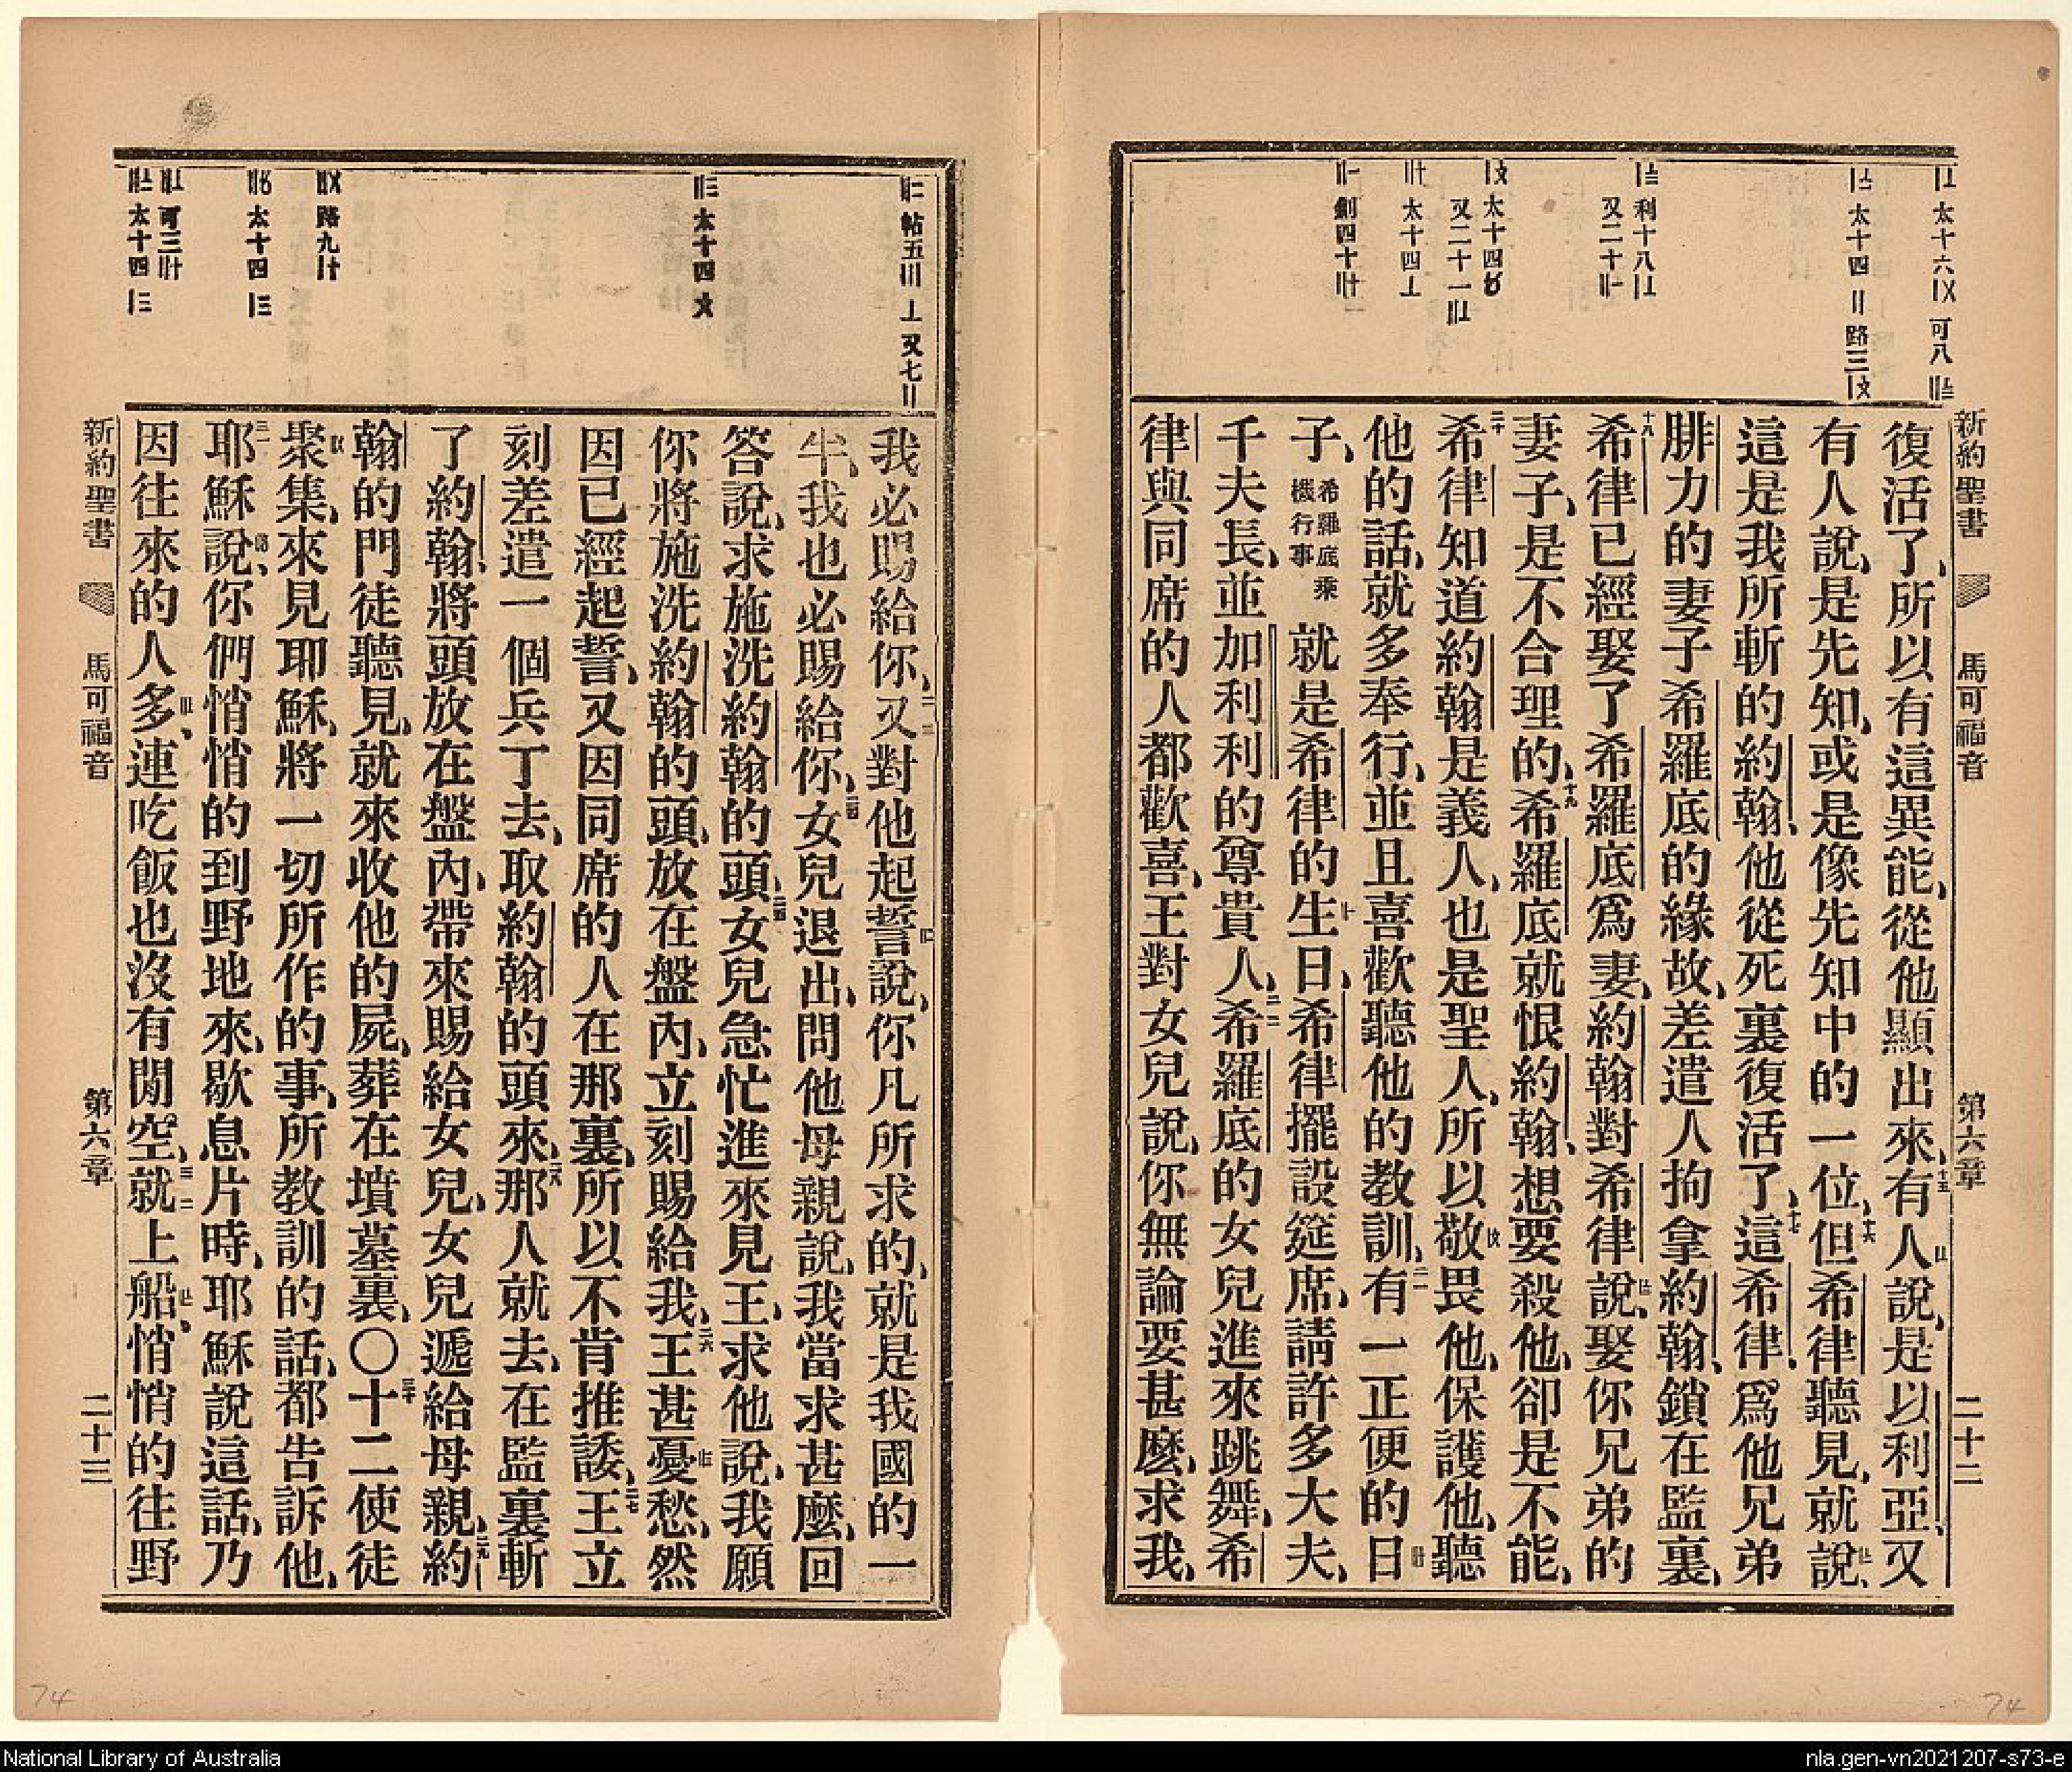 新約聖書 馬可福音 第六章 二十二
復活了、所以有這異能、從他顯出來、十五有人說、是以利亞、又
有人說、是先知、或是像先知中的一位、十六但希律聽見、就說、
這是我所斬的約翰、他從死裏復活了、十七這希律、爲他兄弟
腓力的妻子希羅底的緣故、差遣人拘拿約翰、鎖在監裏、
十八希律已經娶了希羅底爲妻、約翰對希律說、娶你兄弟的
妻子、是不合理的、十九希羅底就恨約翰、想要殺他、卻是不能、
二十希律知道約翰是義人、也是聖人、所以敬畏他、保護他、聽
他的話、就多奉行、並且喜歡聽他的教訓、二一有一正便的日
子、希羅底乘機行事就是希律的生日、希律擺設筵席、請許多大夫、
千夫長、並加利利的尊貴人、二二希羅底的女兒進來跳舞、希
律與同席的人都歡喜、王對女兒說、你無論要甚麼、求我、
我必賜給你、二三又對他起誓說、你凡所求的、就是我國的一
半、我也必賜給你、二四女兒退出、問他母親說、我當求甚麼、回
答說、求施洗約翰的頭、二五女兒急忙進來見王、求他說、我願
你將施洗約翰的頭、放在盤內、立刻賜給我、二六王甚憂愁、然
因已經起誓、又因同席的人在那裏、所以不肯推諉、二七王立
刻差遣一個兵丁去、取約翰的頭來、二八那人就去、在監裏斬
了約翰、將頭放在盤內、帶來賜給女兒、女兒遞給母親、二九約
翰的門徒聽見、就來收他的屍、葬在墳墓裏、〇三十十二使徒
聚集、來見耶穌、將一切所作的事、所教訓的話、都告訴他、
三一耶穌說、你們悄悄的到野地來、歇息片時、耶穌說這話、乃
因往來的人多、連吃飯也沒有閒空、三二就上船、悄悄的往野
新約聖書 馬可福音 第六章 二十三
74
74
National Library of Australia
nla.gen-vn2021207-s73-e